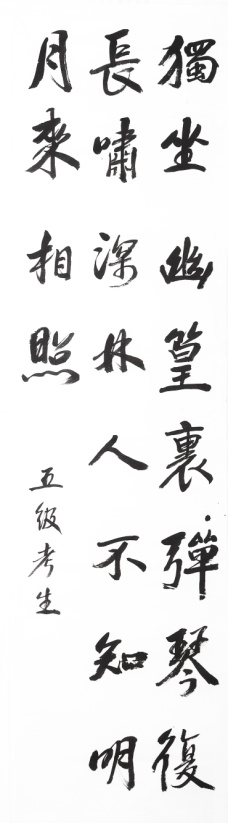 獨坐幽篁裏彈琴復
長嘯深林人不知明
月來相照
五级考生